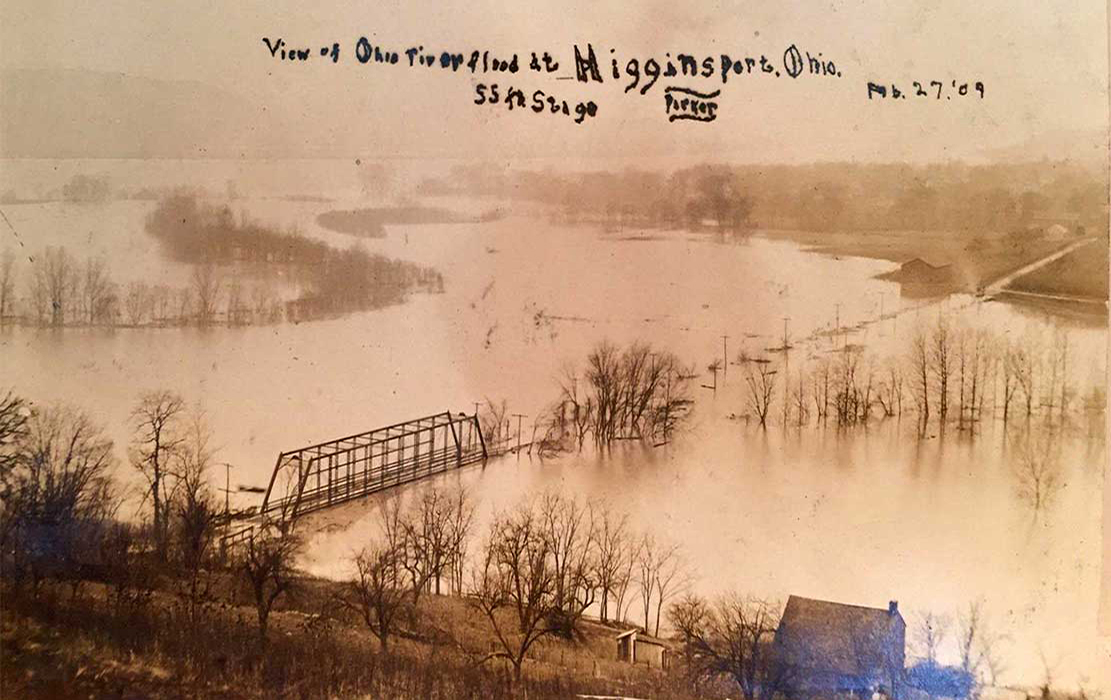 View of Ohio river flood at Higginsport, Ohio.
55 ft Stage Parker Feb. 27. '09